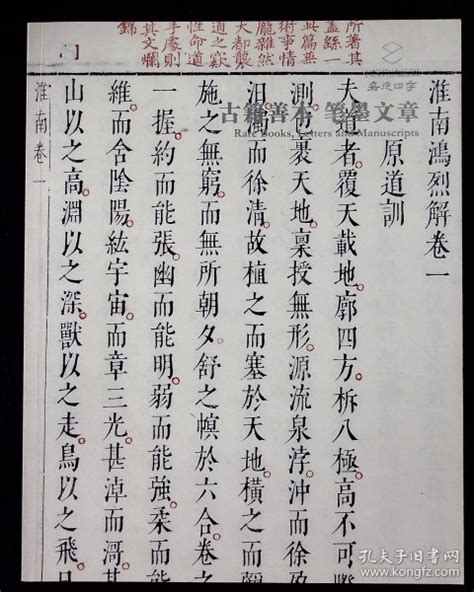 所著其
蓋絲一
其篇無
術事情
龐雜然
大都襲
道之竅
性命道
手處則
其文爛
錦
嘉德四季
古籍善本 笔墨文章
Rare Books, Letters and Manuscripts
淮南鴻烈解卷一
原道訓
夫道者。覆天載地。廓四方。柝八極。高不可際
測。包裹天地。稟授無形。源流泉浡。沖而徐盈
汩濁而徐清。故植之而塞於天地。橫之而彌
施之無窮。而無所朝夕。舒之幎於六合。卷之
一握。約而能張。幽而能明。弱而能強。柔而能
維。而含陰陽。紘宇宙。而章三光。甚淖而滒。甚
山以之高。淵以之深。獸以之走。鳥以之飛。日
淮南卷一
孔夫子旧书网
kongfz.com